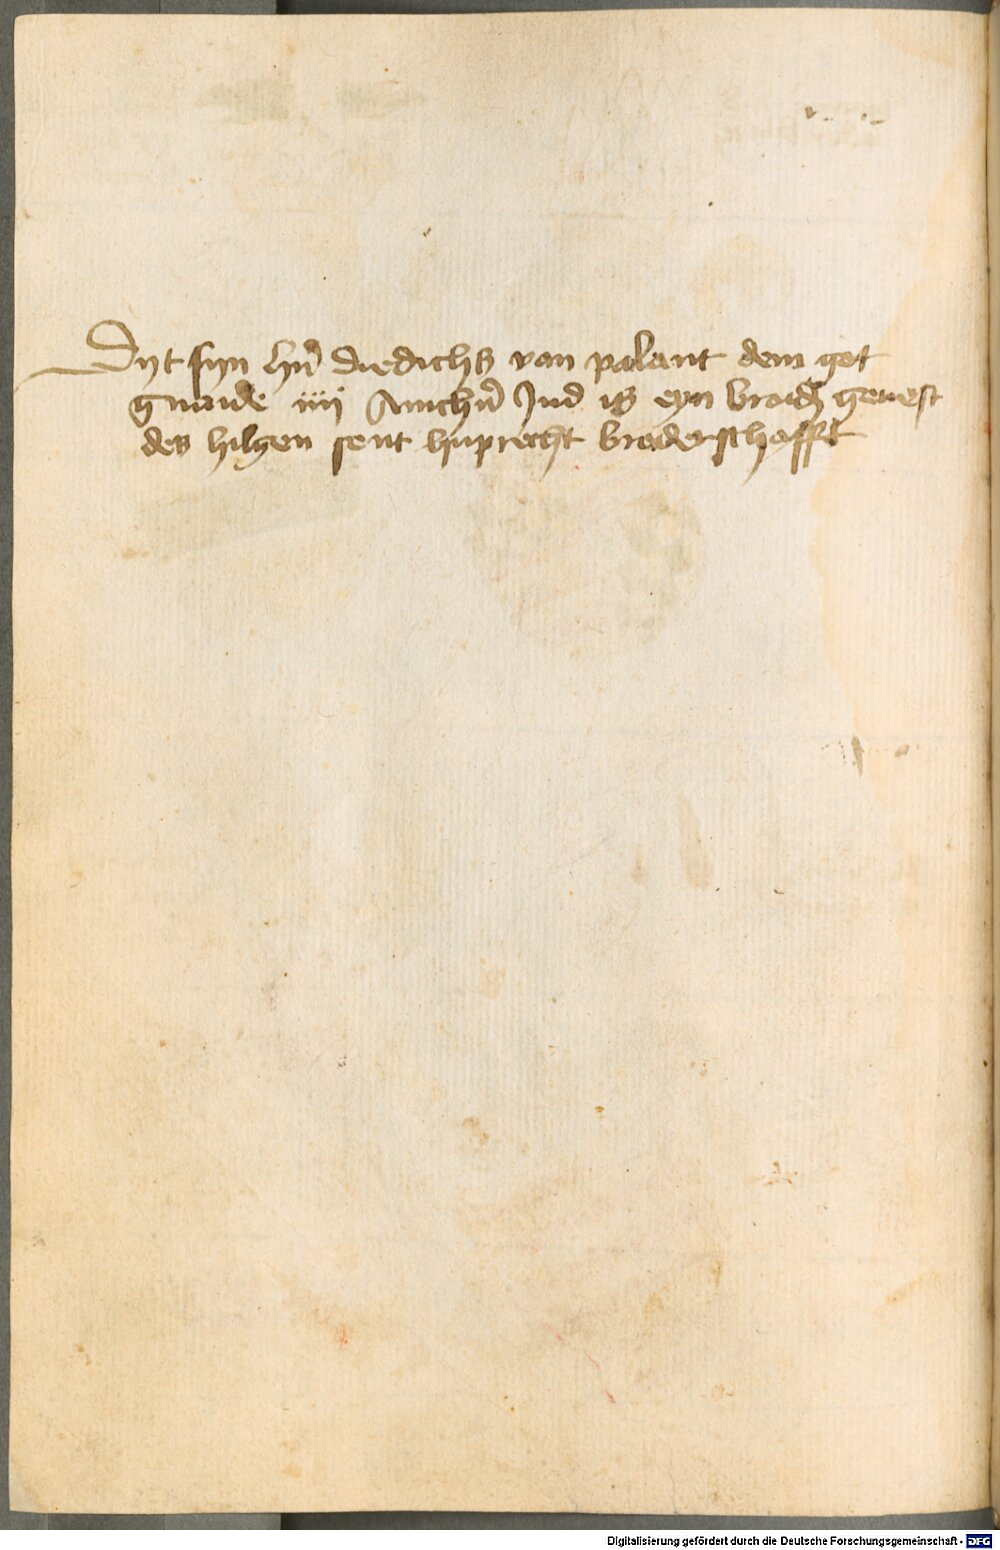 Dyt syn hrn̄ diedichs van palant dem got
gnaide iiij Anichrn̄ Ind is eyn broid̓ gewest
des hilgen sent huprecht broderschafft
Digitalisierung gefördert durch die Deutsche Forschungsgemeinschaft - DFG